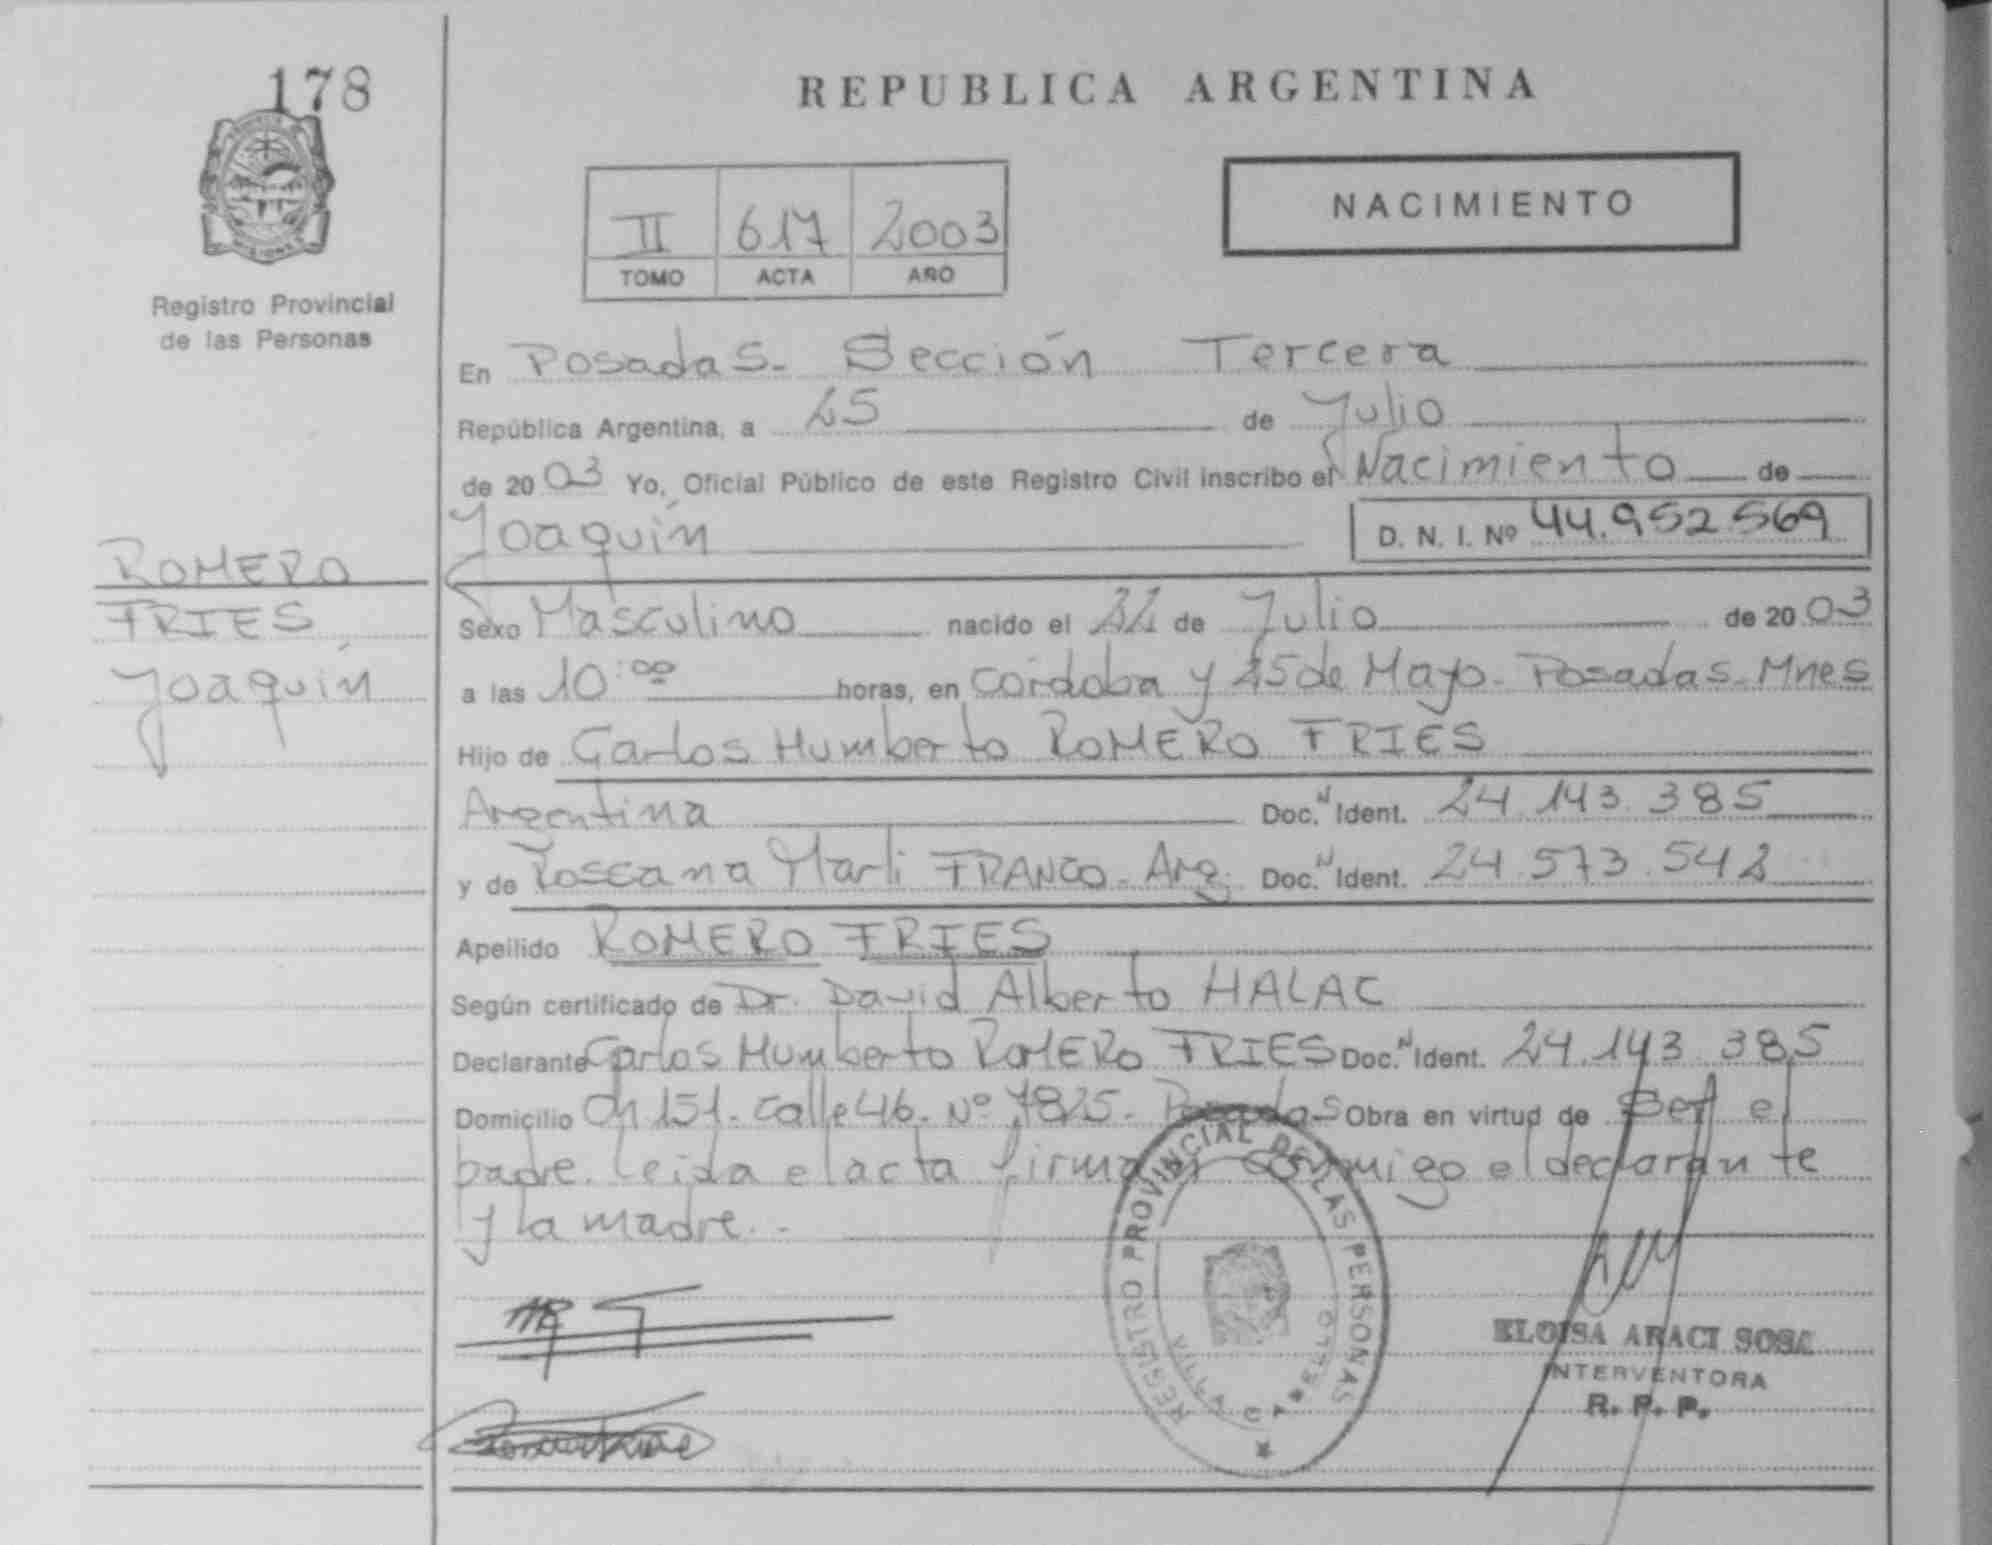 178
REPUBLICA ARGENTINA
NACIMIENTO
II 617 2003
TOMO ACTA AÑO
Registro Provincial
de las Personas
En Posadas - Sección Tercera
República Argentina, a 25 de Julio
de 2003 Yo, Oficial Público de este Registro Civil inscribo el Nacimiento de
Joaquín D. N. I. Nº 44.952.569
ROMERO
FRIES
Joaquín
Sexo Masculino nacido el de Julio de 2003
a las 10:00 horas, en Córdoba y 25 de Mayo - Posadas - Mnes
Hijo de Carlos Humberto ROMERO FRIES
Argentina Doc. N Ident. 24.143.385
y de Rossana Marli FRANCO - Arg. Doc. N Ident. 24.573.542
Apellido ROMERO FRIES
Según certificado de Dr. David Alberto HALAC
Declarante Carlos Humberto ROMERO FRIES Doc. N Ident. 24.143.385
Domicilio Ch 151 - Calle 46 - Nº 7825 - Posadas Obra en virtud de Ser el
padre. Leida el acta firman conmigo el declarante
y la madre. -
REGISTRO PROVINCIAL DE LAS PERSONAS
VILLA CABELLO
ELOISA ARACI SOSA
INTERVENTORA
R. P. P.